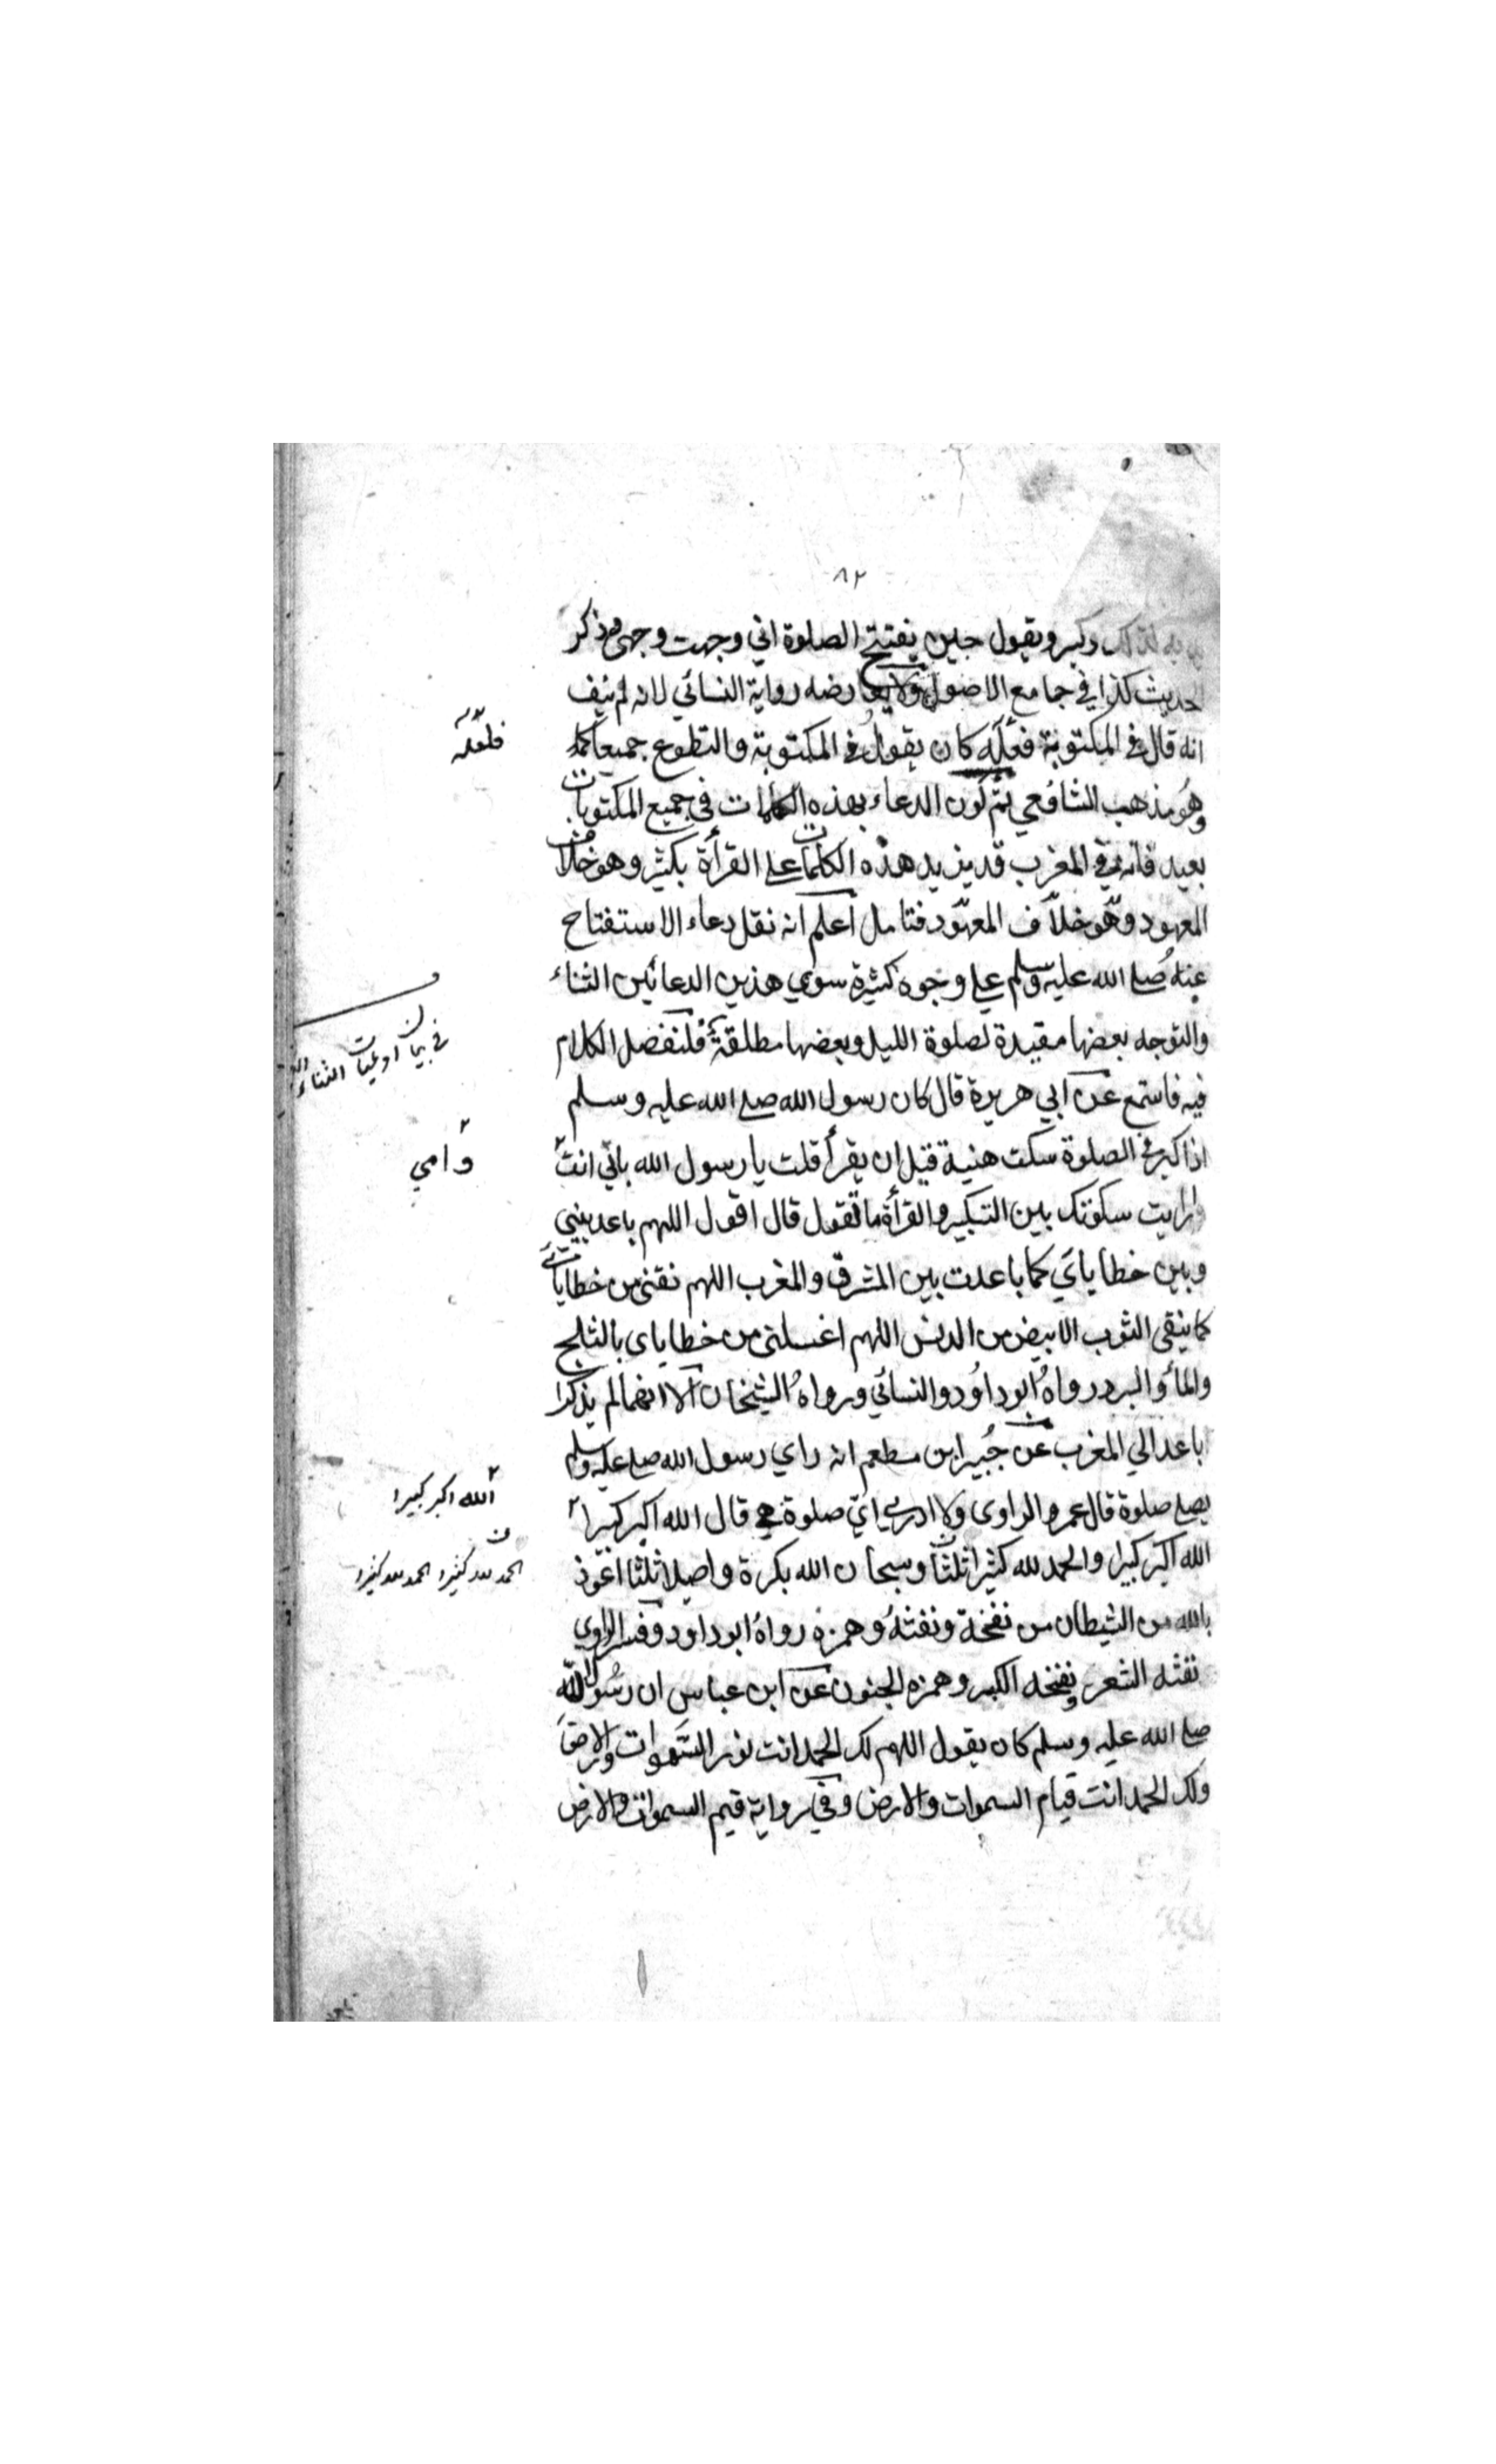 ٨٢
لذلك وكبر ويقول حين يفتتح الصلوة اني وجهت وجهي وذكر
الحديث كذا في جامع الاصول ولا يعارضه رواية النسائي لانه لم ينف
انه قال في المكتوبة فعله كان يقول في المكتوبة والتطوع جميعا كما
فلعله
وهو مذهب الشافعي ثم كون الدعاء بهذه الكلمات في جميع المكتوبات
بعيد فانه في المغرب قد يزيد هذه الكلمات على القرأة بكثير وهو خلاف
المعهود وهو خلاف المعهود فتامل اعلم انه نقل دعاء الاستفتاح
عنه صلى الله عليه وسلم على وجوه كثيرة سوى هذين الدعائين الثناء
والتوجه بعضها مقيدة لصلوة الليل وبعضها مطلقة فلنفصل الكلام
في بيان ادعيات الثناء
فيه فاستمع عن ابي هريرة قال كان رسول الله صلى الله عليه وسلم
اذا كبر في الصلوة سكت هنية قبل ان يقرأ قلت يا رسول الله بابي انت
وامي
ارايت سكوتك بين التكبير والقرأة ما تقول قال اقول اللهم باعد بيني
وبين خطاياي كما باعدت بين المشرق والمغرب اللهم نقني من خطاياي
كما ينقى الثوب الابيض من الدنس اللهم اغسلني من خطاياي بالثلج
والمأ والبرد رواه ابو داود والنسائي ورواه الشيخان الا انهما لم يذكرا
باعد الي المغرب عن جبير ابن مطعم انه راي رسول الله صلى عليه وسلم
يصلي صلوة قال عمرو الراوى ولا ادري اي صلوة هي قال الله اكبر كبيرا
الله اكبر كبيرا
الله اكبر كبيرا والحمد لله كثيرا ثلثا وسبحان الله بكرة واصيلا ثلثا اعوذ
الحمد لله كثيرا الحمد لله كثيرا
بالله من الشيطان من نفخة ونفثه وهمزه رواه ابو داود وفسر الراوي
نفثه الشعر ونفخه الكبر وهمزه الجنون عن ابن عباس ان رسول الله
صلى الله عليه وسلم كان يقول اللهم لك الحمد انت نور السموات والارض
ولك الحمد انت قيام السموات والارض وفي رواية قيم السموات والارض